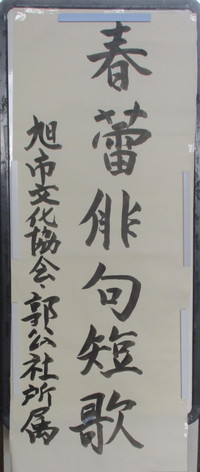 春蕾俳句短歌
旭市文化協会・郭公社所属